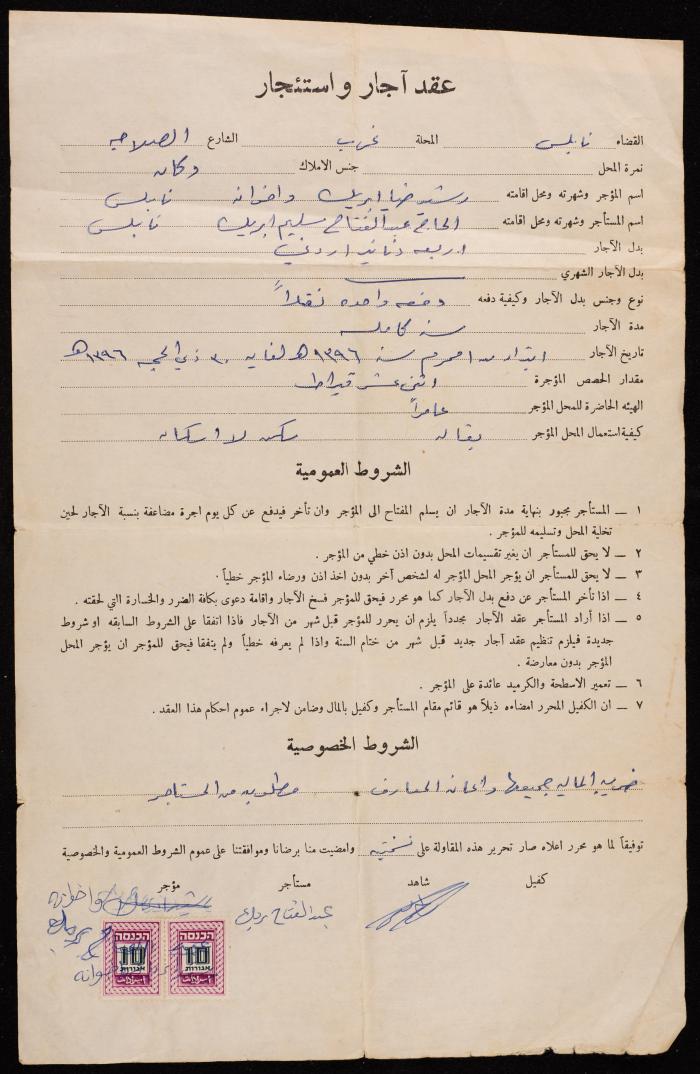 عقد آجار واستئجار
القضاء نابلس المحلة غرب الشارع الصلاحيه
نمرة المحل جنس الاملاك دكان
اسم المؤجر وشهرته ومحل اقامته رشيد ضيا ابريك واخوانه نابلس
اسم المستأجر وشهرته ومحل اقامته الحاج عبد الفتاح سليم ابريك نابلس
بدل الآجار اربعه دنانير اردني
بدل الآجار الشهري
نوع وجنس بدل الآجار وكيفية دفعه دفعه واحده نقداً
مدة الآجار سنه كامله
تاريخ الآجار ابتداء من ١ محرم سنه ١٣٩٦هـ لغايه ٣٠ ذي الحجه ١٣٩٦هـ
مقدار الحصص المؤجرة اثني عشر قيراط
الهيئه الحاضرة للمحل المؤجر عامراً
كيفية استعمال المحل المؤجر بقاله سكن لا اسكان
الشروط العمومية
١ – المستأجر مجبور بنهاية مدة الآجار ان يسلم المفتاح الى المؤجر وان تأخر فيدفع عن كل يوم اجرة مضاعفة بنسبة الآجار لحين
تخلية المحل وتسليمه للمؤجر .
٢ – لا يحق للمستأجر ان يغير تقسيمات المحل بدون اذن خطي من المؤجر .
٣ – لا يحق للمستأجر ان يؤجر المحل المؤجر له لشخص آخر بدون اخذ اذن ورضاء المؤجر خطياً .
٤ – اذا تأخر المستأجر عن دفع بدل الآجار كما هو محرر فيحق للمؤجر فسخ الآجار واقامة دعوى بكافة الضرر والخسارة التي لحقته .
٥ – اذا أراد المستأجر عقد الآجار مجدداً يلزم ان يحرر للمؤجر قبل شهر من الآجار فاذا اتفقا على الشروط السابقه او شروط
جديدة فيلزم تنظيم عقد آجار جديد قبل شهر من ختام السنة واذا لم يعرفه خطياً ولم يتفقا فيحق للمؤجر ان يؤجر المحل
المؤجر بدون معارضة .
٦ – تعمير الاسطحة والكرميد عائدة على المؤجر .
٧ – ان الكفيل المحرر امضاءه ذيلاً هو قائم مقام المستأجر وكفيل بالمال وضامن لاجراء عموم احكام هذا العقد .
الشروط الخصوصية
ضريبه الماليه جميعها واعانه المعارف مطلوبه من المستاجر
توفيقاً لما هو محرر اعلاه صار تحرير هذه المقاولة على نسختين وامضيت منا برضانا وموافقتنا على عموم الشروط العمومية والخصوصية
كفيل شاهد مستأجر مؤجر
عبد الفتاح بريك
واخوانه
הכנסה הכנסה
10 10
אגורות אגורות